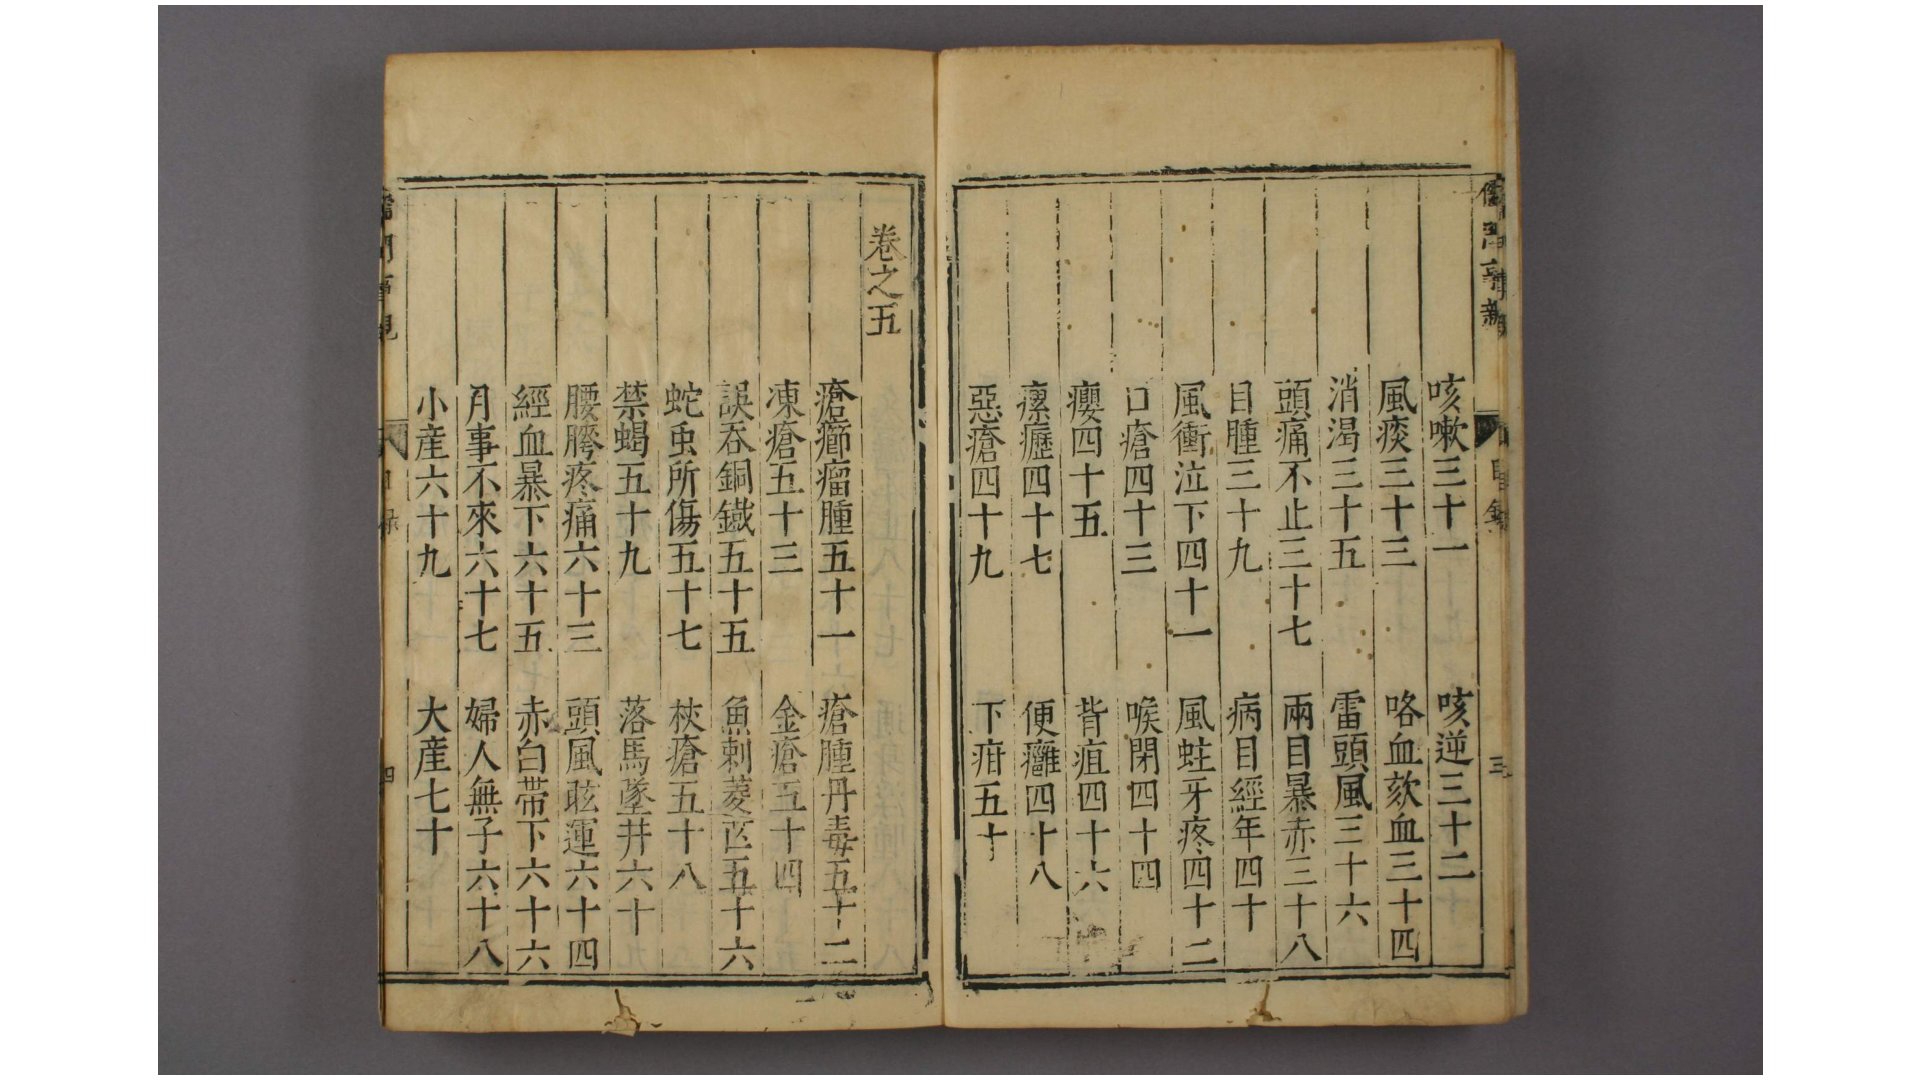 咳嗽三十一 咳逆三十二
風痰三十三 咯血欬血三十四
消渴三十五 雷頭風三十六
頭痛不止三十七 兩目暴赤三十八
目腫三十九 病目經年四十
風衝泣下四十一 風蛀牙疼四十二
口瘡四十三 喉閉四十四
癭四十五 背疽四十六
瘰癧四十七 便癰四十八
惡瘡四十九 下疳五十
目錄
三
卷之五
瘡癤瘤腫五十一 瘡腫丹毒五十二
凍瘡五十三 金瘡五十四
誤吞銅鐵五十五 魚刺菱芒五十六
蛇虫所傷五十七 杖瘡五十八
禁蝎五十九 落馬墜井六十
腰胯疼痛六十三 頭風眩運六十四
經血暴下六十五 赤白帶下六十六
月事不來六十七 婦人無子六十八
小産六十九 大産七十
儒門事親
目錄
四